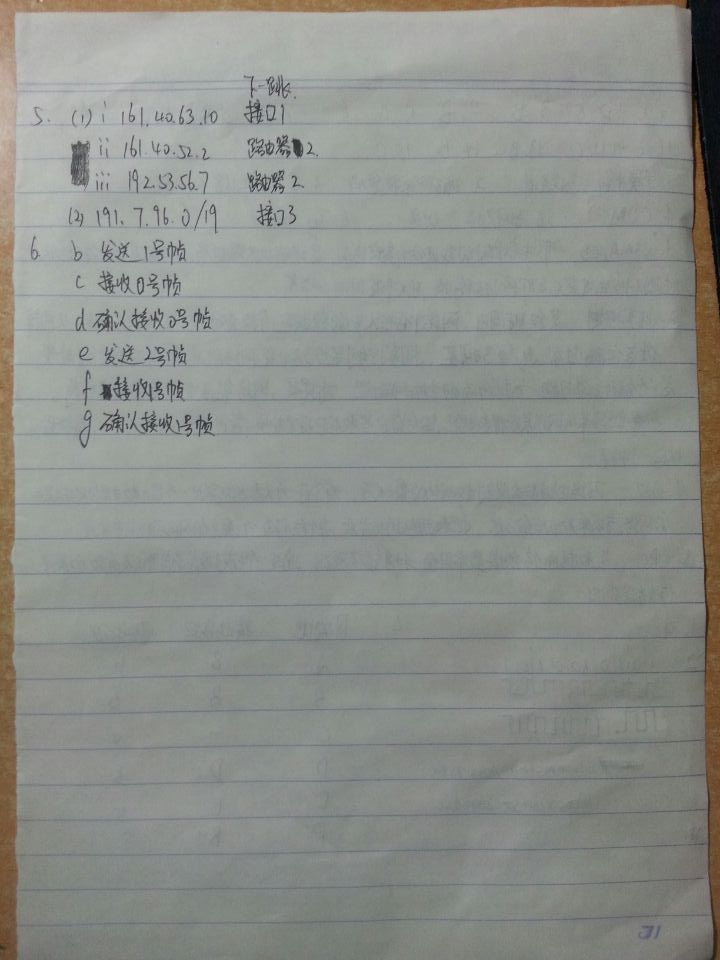 下一跳
5. (1) i 161.40.63.10 接口1
ii 161.40.52.2 路由器2
iii 192.53.56.7 路由器2
(2) 191.7.96.0/19 接口3
6. b 发送1号帧
c 接收0号帧
d 确认接收0号帧
e 发送2号帧
f 接收1号帧
g 确认接收1号帧